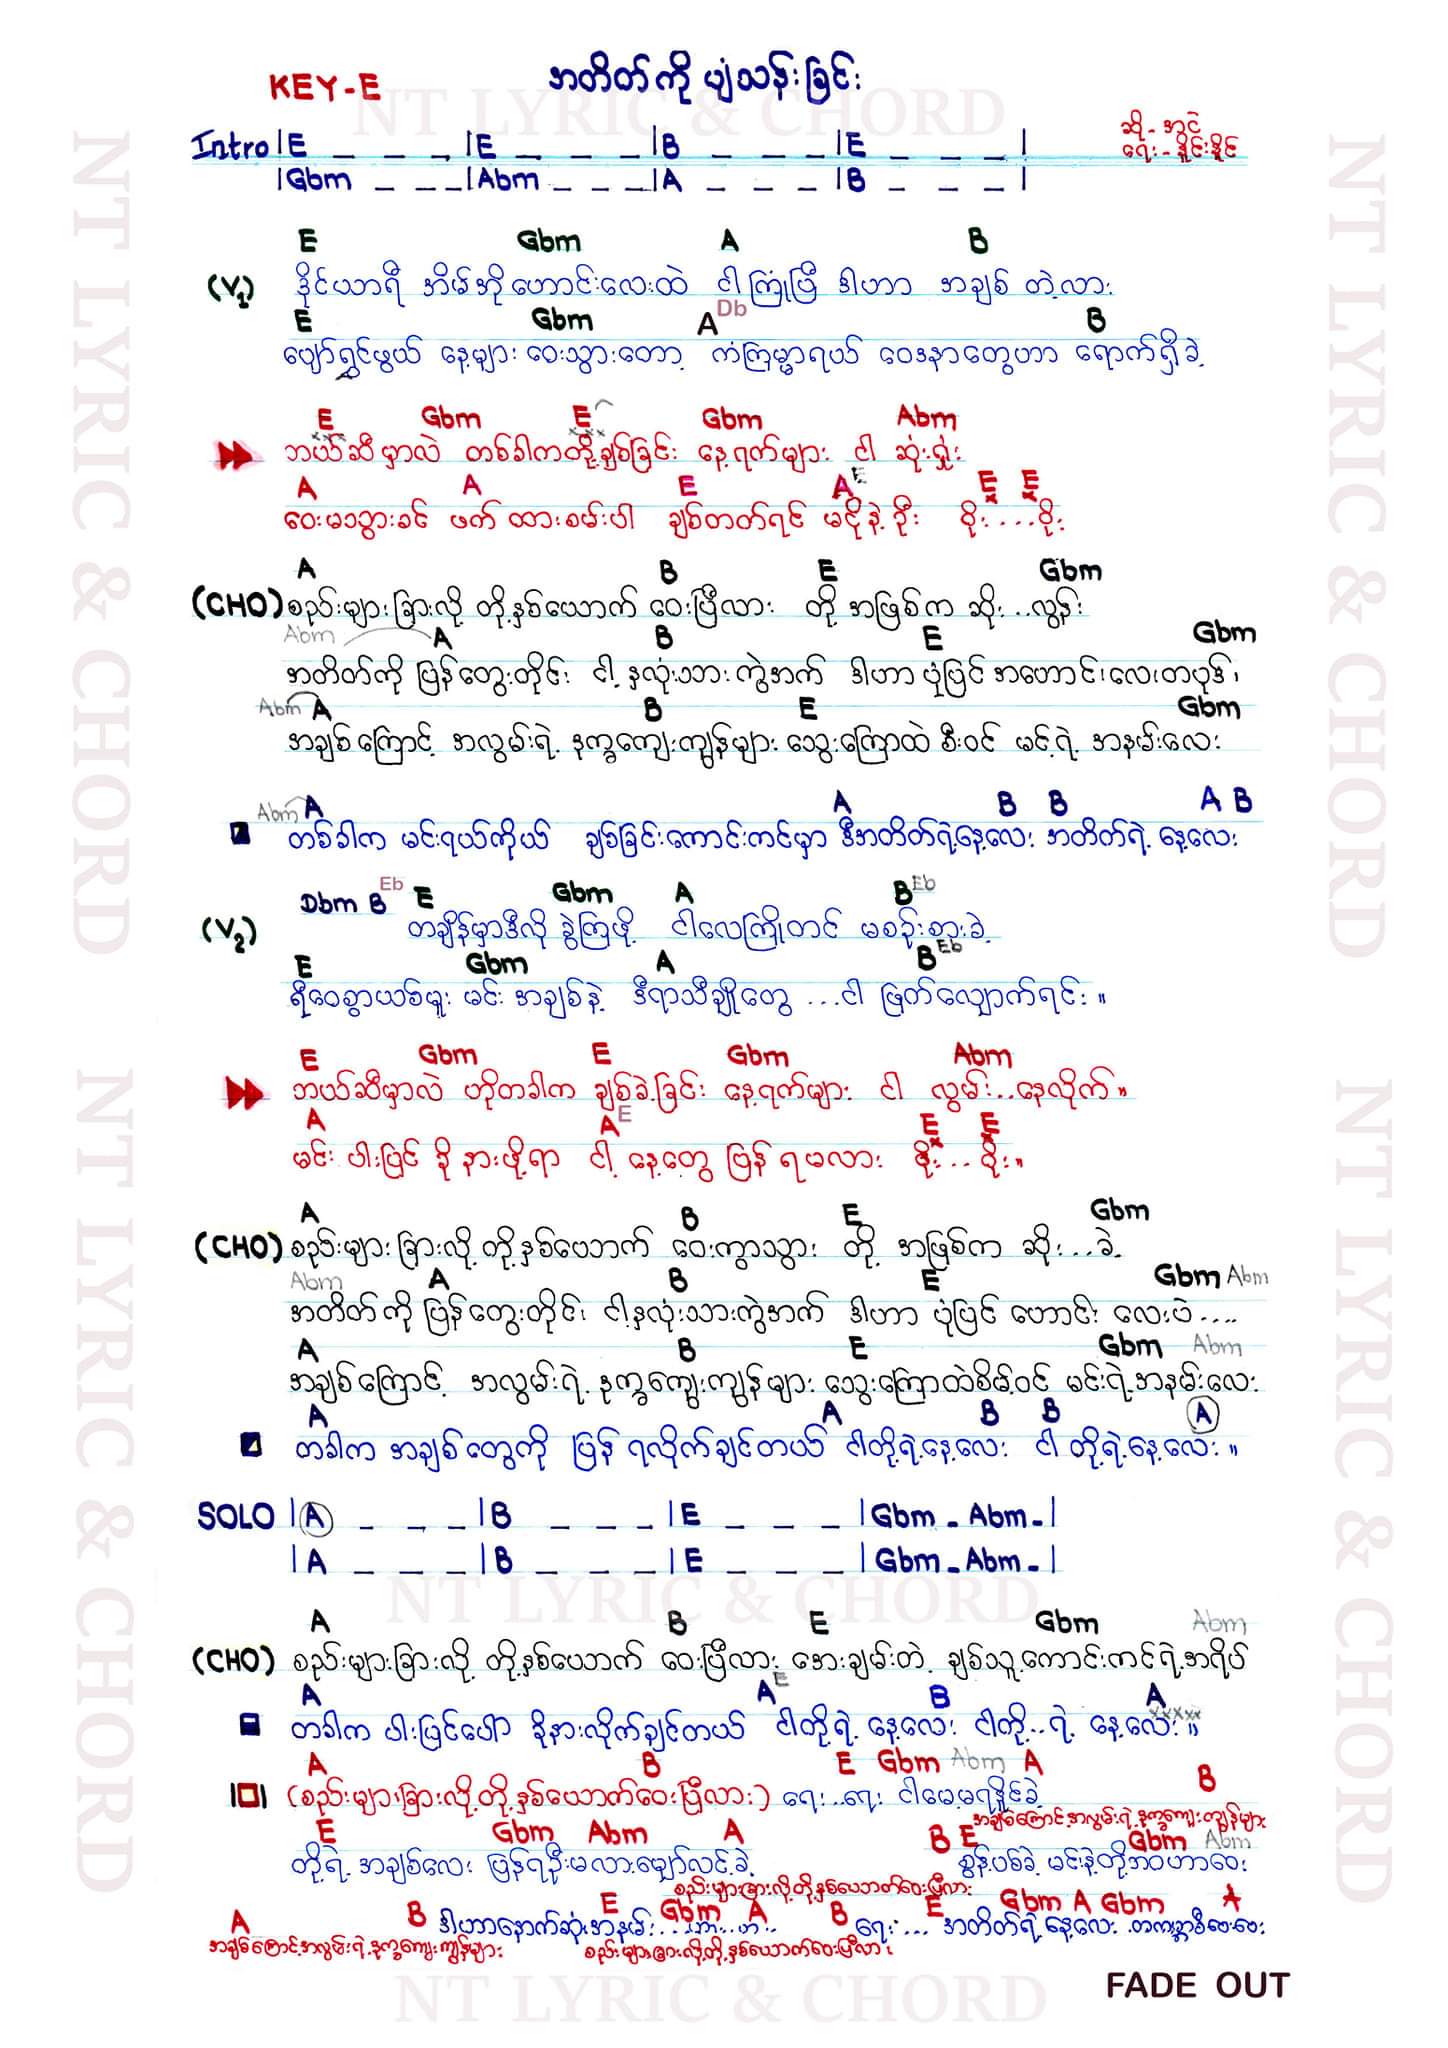 KEY-E
အတိတ်ကို ပျံသန်းခြင်း
ဆို - အငဲ
ရေး - နိုင်းနိုင်
Intro |E _ _ _ |E _ _ _ |B _ _ _ |E _ _ _ |
|Gbm _ _ _ |Abm _ _ _ |A _ _ _ |B _ _ _ |
E Gbm A B
(V1) ဒိုင်ယာရီ အိမ်အို ဟောင်းလေးထဲ ငါကြုံပြီ ဒါဟာ အချစ် တဲ့လား
E Gbm A Db B
ပျော်ရွှင်ဖွယ် နေ့များ ဝေးသွားတော့ ကံကြမ္မာရယ် ဝေဒနာတွေဟာ ရောက်ရှိခဲ့
E Gbm E Gbm Abm
ဘယ်ဆီမှာလဲ တစ်ခါကတို့ချစ်ခြင်း နေ့ရက်များ ငါ ဆုံးရှုံး
A A E A E E E
ဝေးမသွားခင် ဖက်ထားစမ်းပါ ချစ်တတ်ရင် မငိုနဲ့ဦး စိုး....စိုး
A B E Gbm
(CHO) စည်းများခြားလို့ တို့နှစ်ယောက် ဝေးပြီလား တို့အဖြစ်က ဆိုး...လွန်း
Abm A B E Gbm
အတိတ်ကို ပြန်တွေးတိုင်း ငါ့နှလုံးသား ကွဲအက် ဒါဟာ ပုံပြင် အဟောင်းလေးတပုဒ်
Abm A B E Gbm
အချစ်ကြောင့် အလွမ်းရဲ့ ဒုက္ခကျေးကျွန်များ သွေးကြောထဲ စီးဝင် မင့်ရဲ့ အနမ်းလေး
Abm A A B B A B
တစ်ခါက မင်းရယ်ကိုယ် ချစ်ခြင်းကောင်းကင်မှာ ဒီအတိတ်ရဲ့နေ့လေး အတိတ်ရဲ့ နေ့လေး
Dbm B Eb E Gbm A B Eb
(V2) တချိန်မှာဒီလို ခွဲကြဖို့ ငါလေကြိုတင် မစဉ်းစားခဲ့
E Gbm A B Eb
ရီဝေစွာယစ်မူး မင်း အချစ်နဲ့ ဒီရာသီချိုတွေ ...ငါ ဖြတ်လျှောက်ရင်း ။
E Gbm E Gbm Abm
ဘယ်ဆီမှာလဲ ဟိုတခါက ချစ်ခဲ့ခြင်း နေ့ရက်များ ငါ လွမ်း...နေလိုက် ။
A A E E E
မင်း ပါးပြင် ခို နားဖို့ရာ ငါ့ နေ့တွေ ပြန် ရမလား စိုး...စိုး ။
A B E Gbm
(CHO) စည်းများခြားလို့ တို့နှစ်ယောက် ဝေးကွာသွား တို့ အဖြစ်က ဆိုး...ခဲ့
Abm A B E Gbm Abm
အတိတ်ကို ပြန်တွေးတိုင်း ငါ့နှလုံးသားကွဲအက် ဒါဟာ ပုံပြင် ဟောင်း လေးပဲ....
A B E Gbm Abm
အချစ်ကြောင့် အလွမ်းရဲ့ ဒုက္ခကျေးကျွန်များ သွေးကြောထဲစိမ့်ဝင် မင်းရဲ့အနမ်းလေး
A A B B A
တခါက အချစ်တွေကို ပြန် ရလိုက်ချင်တယ် ငါတို့ရဲ့နေ့လေး ငါ တို့ရဲ့နေ့လေး ။
SOLO |A _ _ _ |B _ _ _ |E _ _ _ |Gbm - Abm - |
|A _ _ _ |B _ _ _ |E _ _ _ |Gbm - Abm - |
A B E Gbm Abm
(CHO) စည်းများခြားလို့ တို့နှစ်ယောက် ဝေးပြီလား အေးချမ်းတဲ့ ချစ်သူ့ကောင်းကင်ရဲ့အရိပ်
A A E B A
တခါက ပါးပြင်ပေါ် ခိုနားလိုက်ချင်တယ် ငါတို့ရဲ့ နေ့လေး ငါတို့..ရဲ့ နေ့လေး ။
A B E Gbm Abm A B
(စည်းများခြားလို့တို့နှစ်ယောက်ဝေးပြီလား) ရေး...ရေး ငါမေ့မရနိုင်ခဲ့
အချစ်ကြောင့်အလွမ်းရဲ့ဒုက္ခကျေးကျွန်များ
E Gbm Abm A B E Gbm Abm
တို့ရဲ့ အချစ်လေး ပြန်ရဦးမလားမျှော်လင့်ခဲ့ စွန့်ပစ်ခဲ့ မင်းနဲ့တို့ဘဝဟာဝေး
စည်းများခြားလို့တို့နှစ်ယောက်ဝေးပြီလား
A B E Gbm A B E Gbm A Gbm A
ဒါဟာနောက်ဆုံးအနမ်း ရေး ... အတိတ်ရဲ့နေ့လေး
အချစ်ကြောင့်အလွမ်းရဲ့ဒုက္ခကျေးကျွန်များ စည်းများခြားလို့တို့နှစ်ယောက်ဝေးပြီလား
FADE OUT
NT LYRIC & CHORD
NT LYRIC & CHORD
NT LYRIC & CHORD
NT LYRIC & CHORD
NT LYRIC & CHORD
NT LYRIC & CHORD
NT LYRIC & CHORD